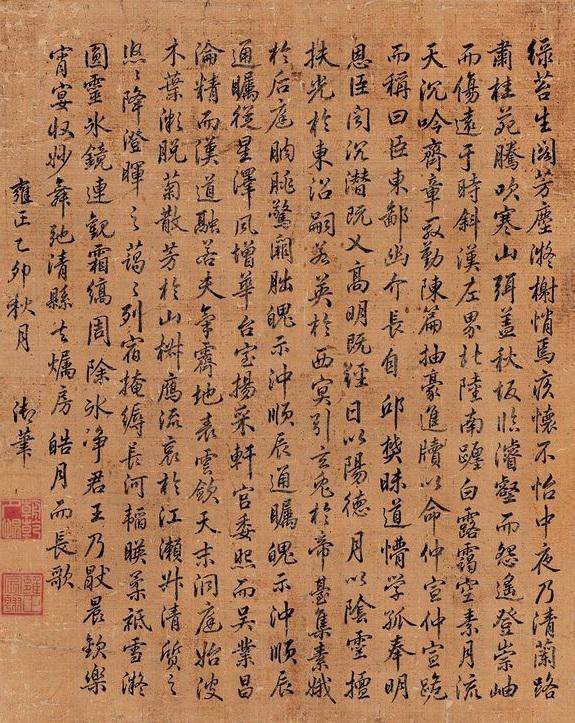 綠苔生閣芳塵凝榭悄焉疚懷不怡中夜乃清蘭路
肅桂苑騰吹寒山弭蓋秋坂臨濬壑而怨遙登崇岫
而傷遠于時斜漢左界北陸南躔白露靄空素月流
天沉吟齊章殷勤陳篇抽毫進牘以命仲宣仲宣跪
而稱曰臣東鄙幽介長自邱樊昧道懵學孤奉明
恩臣聞沉潛既乂高明既經日以陽德月以陰靈擅
扶光於東沼嗣若英於西冥引玄兔於帝臺集素娥
於后庭朒朓驚闕朏魄示沖順辰通矚魄示沖順辰
通矚從星澤風增華台室揚采軒宮委照而吳業昌
淪精而漢道融若夫氣霽地表雲斂天末洞庭始波
木葉漸脫菊散芳於山椒雁流哀於江瀨升清質之
悠〻降澄暉之藹〻列宿掩縟長河韜暎柔祇雪凝
圓靈冰鏡連觀霜縞周除冰淨君王乃厭晨歡樂
宵宴收妙舞弛清縣去燭房皓月而長歌
雍正乙卯秋月 御筆
雍正宸翰